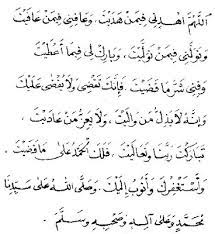 اَللّٰهُمَّ اهْدِنِيْ فِيْمَنْ هَدَيْتَ، وَعَافِنِيْ فِيْمَنْ عَافَيْتَ
وَتَوَلَّنِيْ فِيْمَنْ تَوَلَّيْتَ، وَبَارِكْ لِيْ فِيْمَا أَعْطَيْتَ
وَقِنِيْ شَرَّ مَا قَضَيْتَ، فَإِنَّكَ تَقْضِيْ وَلَا يُقْضَى عَلَيْكَ
وَإِنَّهُ لَا يَذِلُّ مَنْ وَالَيْتَ، وَلَا يَعِزُّ مَنْ عَادَيْتَ،
تَبَارَكْتَ رَبَّنَا وَتَعَالَيْتَ، فَلَكَ الْحَمْدُ عَلَى مَا قَضَيْتَ،
وَأَسْتَغْفِرُكَ وَأَتُوْبُ إِلَيْكَ، وَصَلَّى اللهُ عَلَى سَيِّدِنَا
مُحَمَّدٍ وَعَلَى آلِهِ وَصَحْبِهِ وَسَلَّمَ